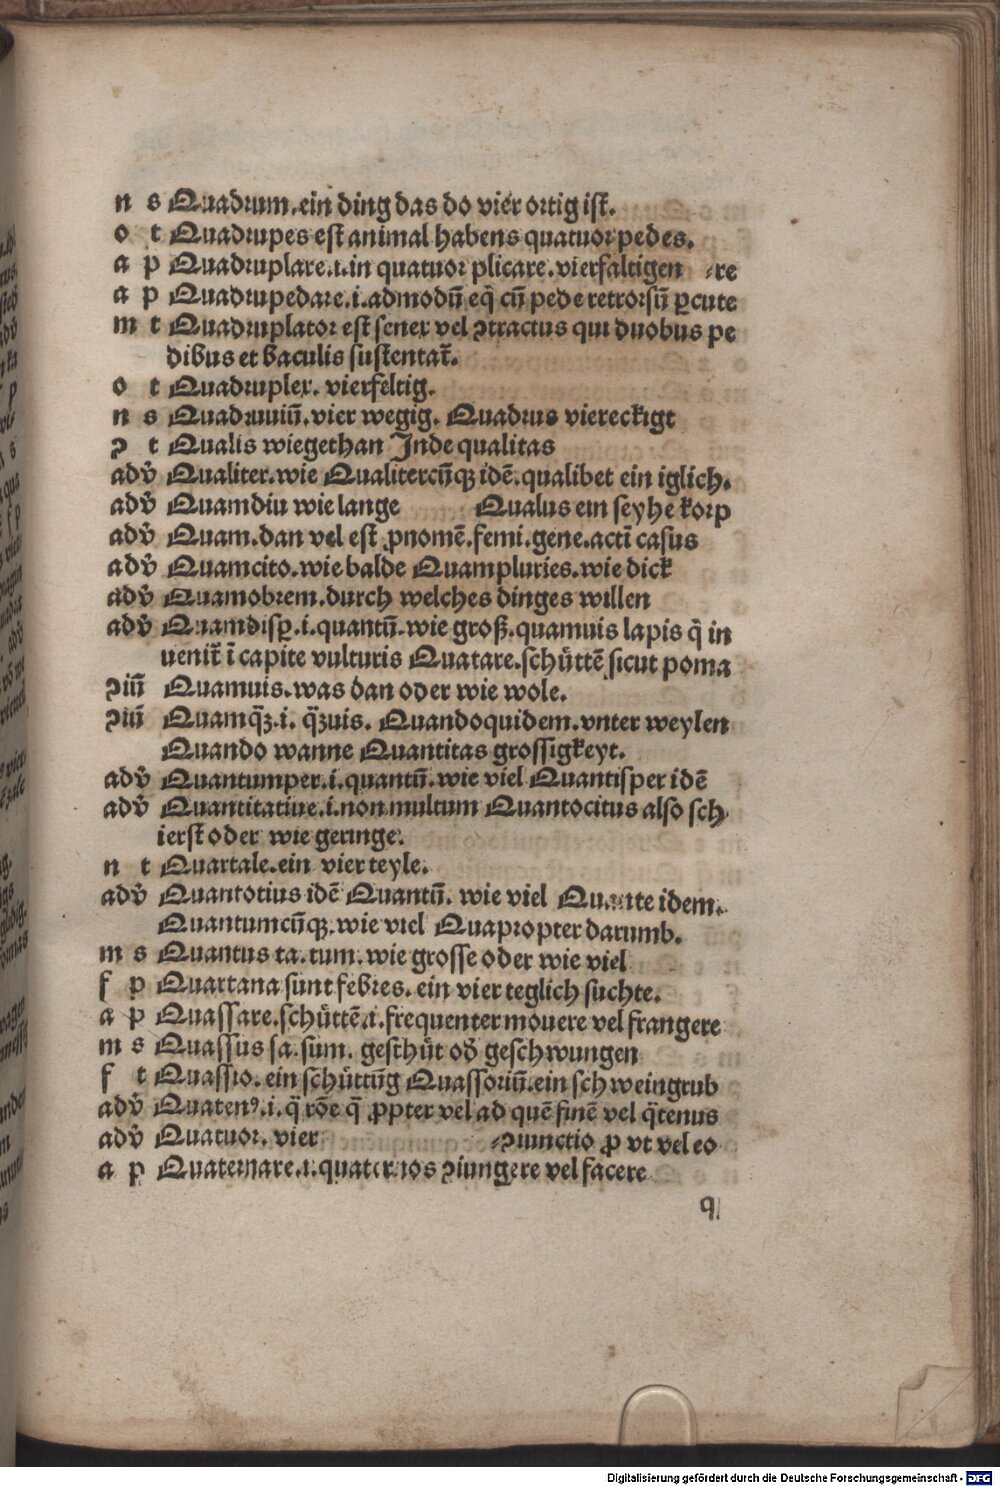 n s Quadrum.ein ding das do vier ortig ist.
o t Quadrupes est animal habens quatuor pedes.
a p Quadruplare.i.in quatuor plicare.vierfaltigen ⸗re
a p Quadrupedare.i.admodū eq̄ cū pede retrorsū ꝑcute
m t Quadruplator est senex vel ꝯtractus qui duobus pe
dibus et baculis sustentat̄.
o t Quadruplex. vierfeltig.
n s Quadruuiū.vier wegig. Quadrus viereckigt
ꝯ t Qualis wiegethan Inde qualitas
adv̄ Qualiter.wie Qualitercūqꝫ idē.qualibet ein iglich.
adv̄ Quamdiu wie lange Qualus ein seyhe korp
adv̄ Quam.dan vel est ꝓnomē.femi.gene.acti casus
adv̄ Quamcito.wie balde Quampluries.wie dick
adv̄ Quamobrem.durch welches dinges willen
adv̄ Quamdisꝑ.i.quantū.wie groß.quamuis lapis q̄ in
uenit̄ ī capite vulturis Quatare.schüttē sicut poma
ꝯiū Quamuis.was dan oder wie wole.
ꝯiū Quamqꝫ.i. qꝫuis. Quandoquidem.vnter weylen
Quando wanne Quantitas grossigkeyt.
adv̄ Quantumper.i.quantū.wie viel Quantisper idē
adv̄ Quantitatiue.i.non multum Quantocitus also sch
ierst oder wie geringe.
n t Quartale.ein vier teyle.
adv̄ Quantotius idē Quantū. wie viel idem.
Quantumcūqꝫ.wie viel Quapropter darumb.
m s Quantus ta.tum.wie grosse oder wie viel
f p Quartana sunt febres.ein vier teglich suchte.
a p Quassare.schüttē.i.frequenter mouere vel frangere
m s Quassus sa.sum. geschüt od̄ geschwungen
f t Quassio.ein schüttūg Quassoriū.ein schweingrub
adv̄ Quatenꝰ.i.q̄ rōe q̄ ꝓpter vel ad quē finē vel q̄tenus
adv̄ Quatuor. vier ⸗ꝯiunctio ꝓ vt vel eo
a p Quaternare.i.quaternos ꝯiungere vel facere
q
Digitalisierung gefördert durch die Deutsche Forschungsgemeinschaft - DFG